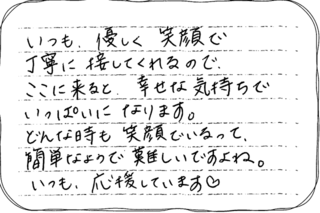 いつも、優しく 笑顔で
丁寧に 接してくれるので、
ここに来ると、幸せな気持ちで
いっぱいに なります。
どんな時も 笑顔でいるって、
簡単なようで 難しいですよね。
いつも、応援しています♡